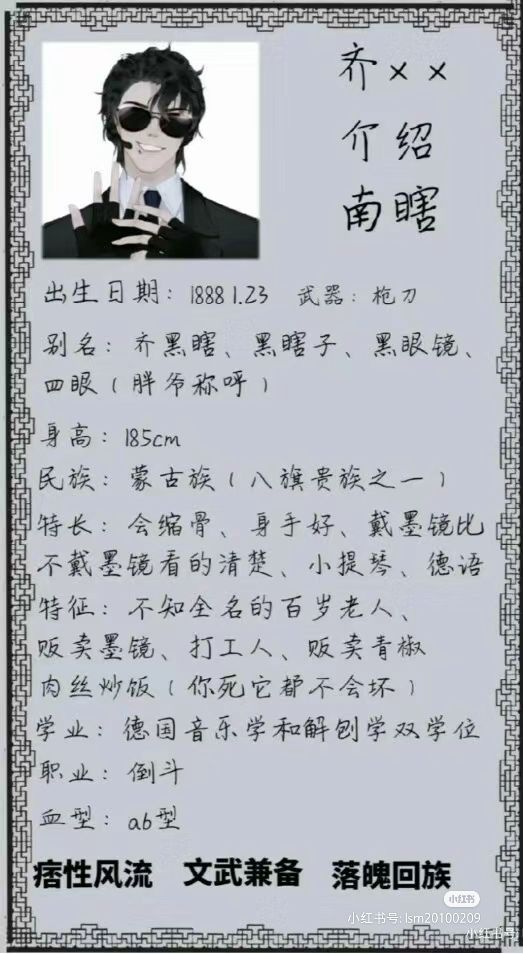 齐××
介绍
南瞎
出生日期：1888 1.23 武器：枪刀
别名：齐黑瞎、黑瞎子、黑眼镜、
四眼（胖爷称呼）
身高：185cm
民族：蒙古族（八旗贵族之一）
特长：会缩骨、身手好、戴墨镜比
不戴墨镜看的清楚、小提琴、德语
特征：不知全名的百岁老人、
贩卖墨镜、打工人、贩卖青椒
肉丝炒饭（你死它都不会坏）
学业：德国音乐学和解刨学双学位
职业：倒斗
血型：ab型
痞性风流 文武兼备 落魄回族
小红书
小红书号: lsm20100209
小红书号